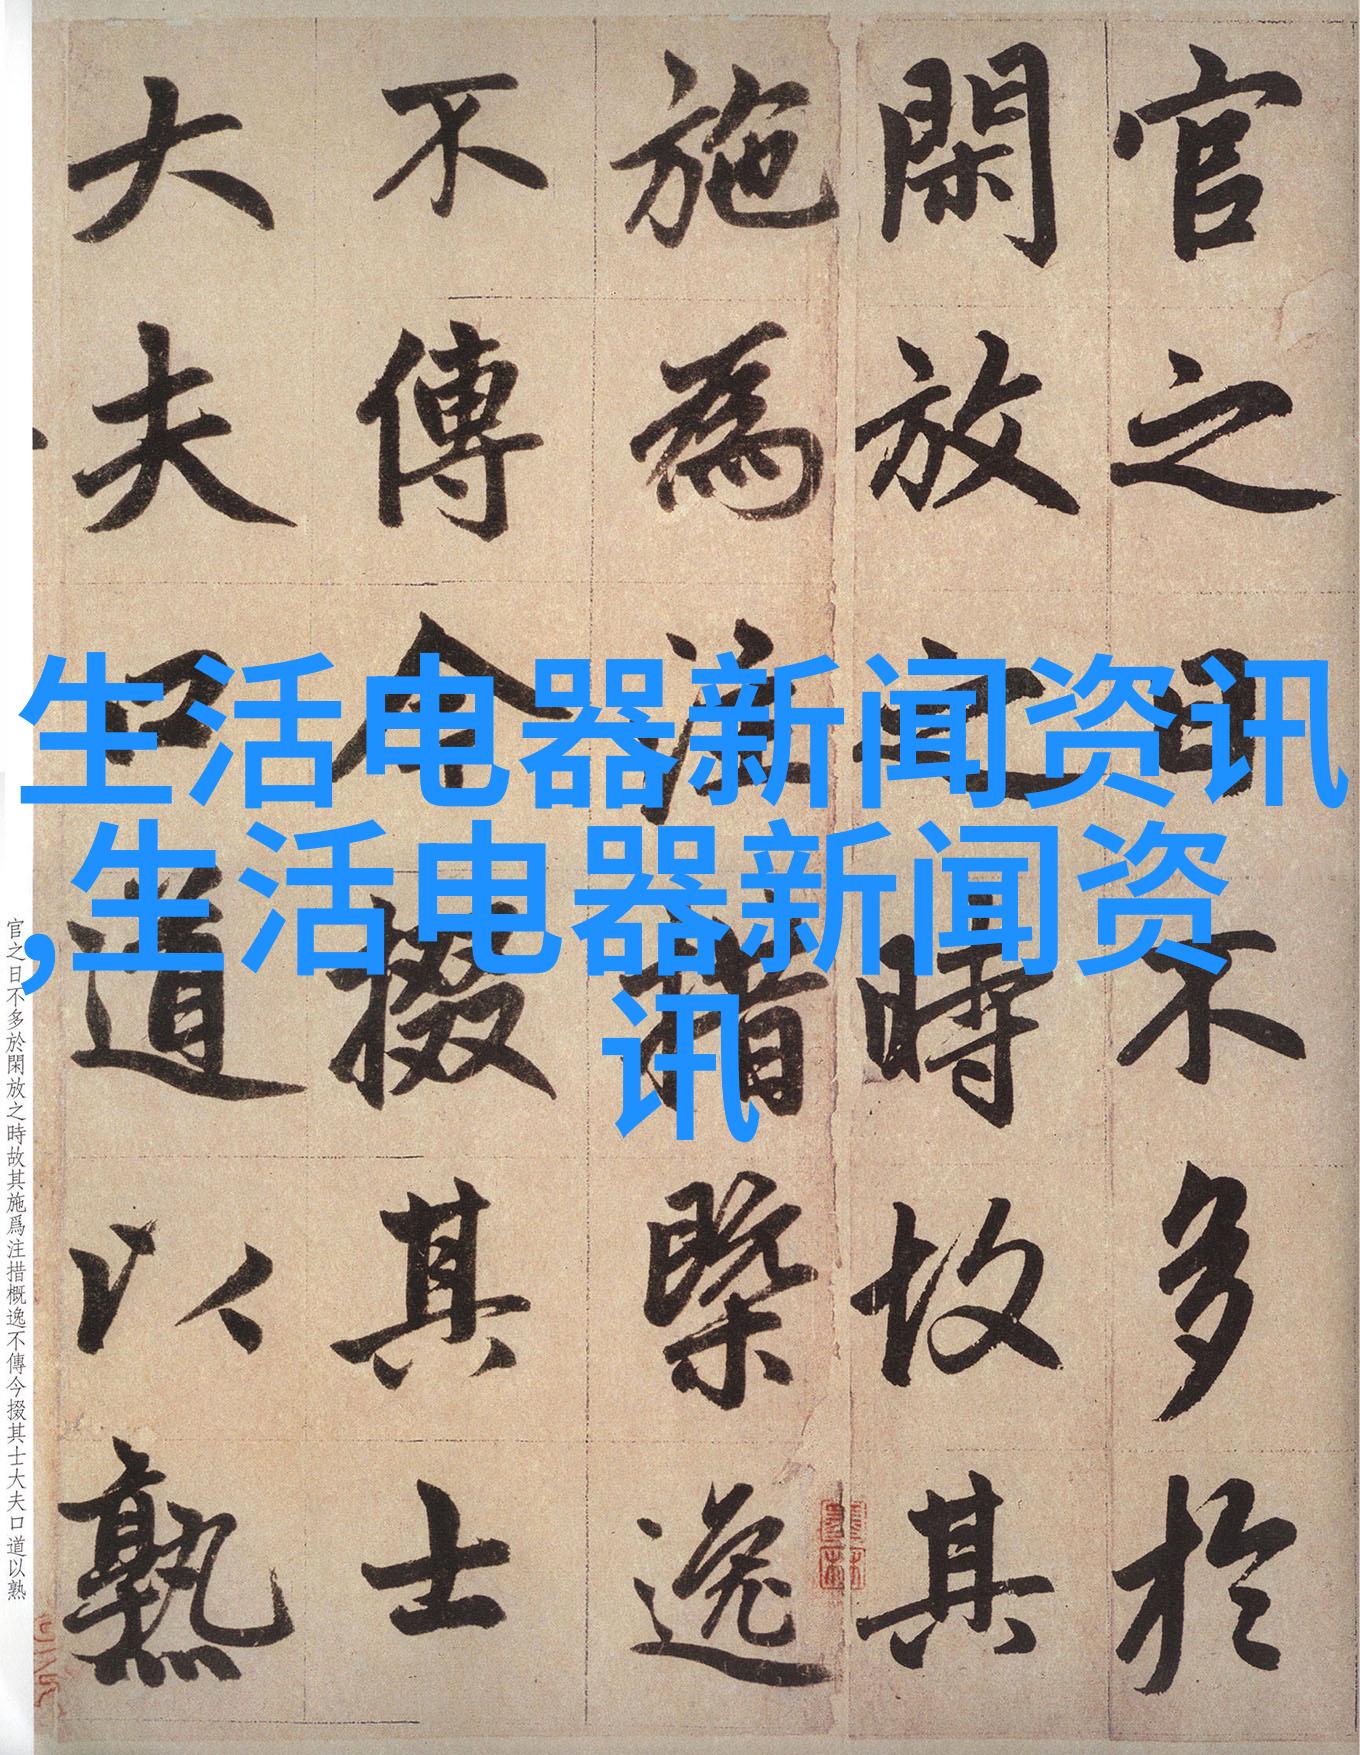 官之日不多於
閑放之時故其
施為注措槩逸
不傳今掇其士
大夫口道以熟
生活电器新闻资讯
,生活电器新闻资
讯
官之日不多於閑放之時故其施爲注措概逸不傳今掇其士大夫口道以熟